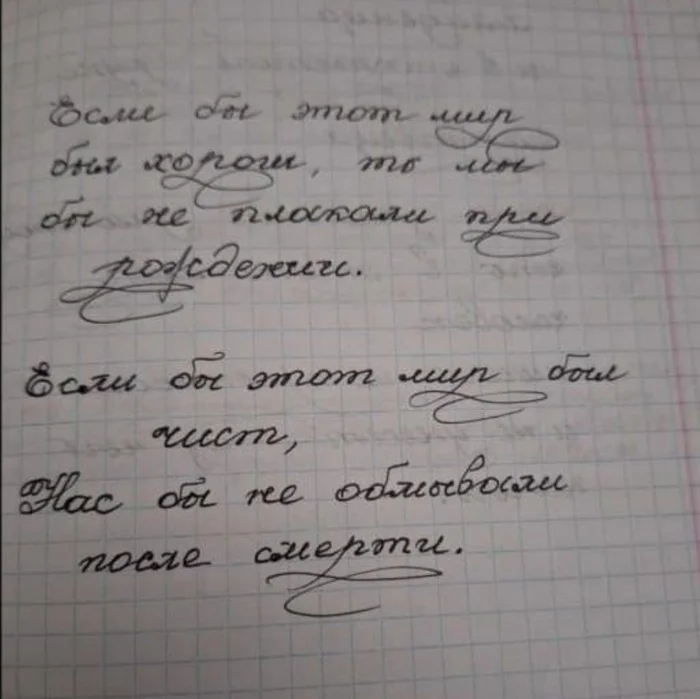 Если бы этот мир
был хорош, то мы
бы не плакали при
рождении.
Если бы этот мир был
чист,
Нас бы не обмывали
после смерти.